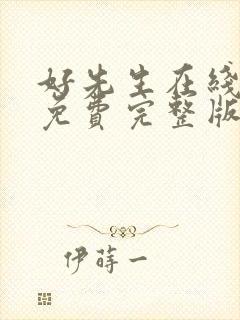 好先生在线
免费完整版
伊莳一